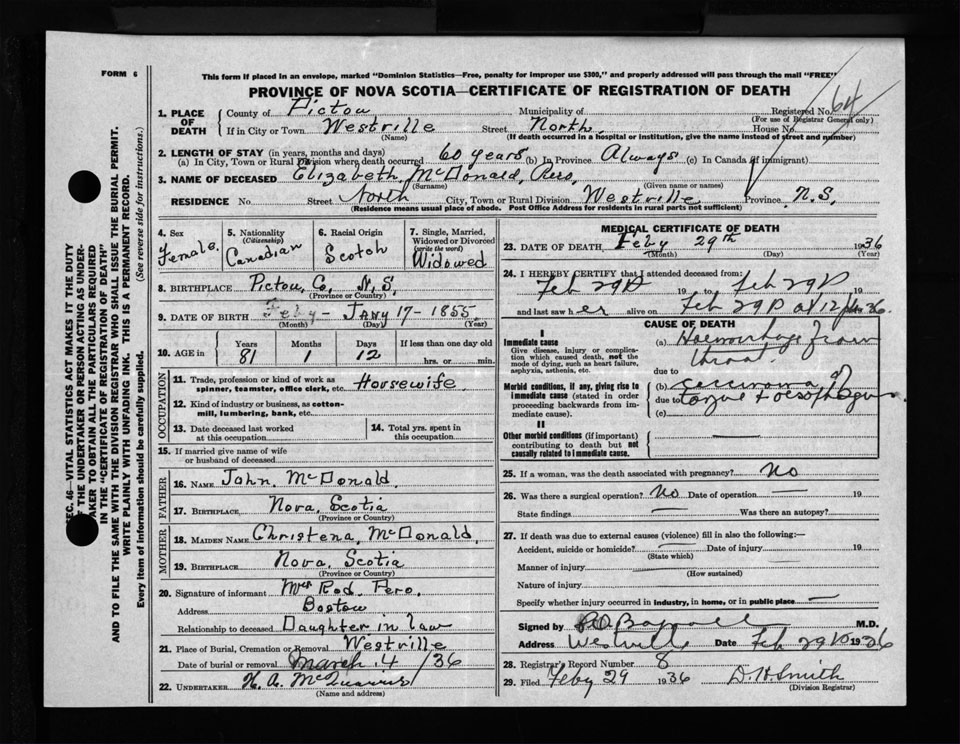 FORM 6
This form if placed in an envelope, marked "Dominion Statistics—Free, penalty for improper use $300," and properly addressed will pass through the mail "FREE"
PROVINCE OF NOVA SCOTIA—CERTIFICATE OF REGISTRATION OF DEATH
1. PLACE OF DEATH
County of Pictou Municipality of Registered No. 64
(For use of Registrar General only)
If in City or Town Westville Street North House No.
(Name) (If death occurred in a hospital or institution, give the name instead of street and number)
2. LENGTH OF STAY (in years, months and days)
(a) In City, Town or Rural Division where death occurred 60 years (b) In Province Always (c) In Canada (if immigrant)
3. NAME OF DECEASED Elizabeth, McDonald,
(Surname) (Given name or names)
RESIDENCE No. Street North City, Town or Rural Division Westville Province N.S.
(Residence means usual place of abode. Post Office Address for residents in rural parts not sufficient)
4. Sex
Female.
5. Nationality
(Citizenship)
Canadian
6. Racial Origin
Scotch
7. Single, Married, Widowed or Divorced
(write the word)
Widowed
8. BIRTHPLACE Pictou, Co, N.S,
(Province or Country)
9. DATE OF BIRTH Feby - Jany 17 - 1855
(Month) (Day) (Year)
10. AGE in
Years Months Days If less than one day old
81 1 12 hrs. or min.
OCCUPATION
11. Trade, profession or kind of work as spinner, teamster, office clerk, etc. Housewife
12. Kind of industry or business, as cotton-mill, lumbering, bank, etc.
13. Date deceased last worked at this occupation
14. Total yrs. spent in this occupation
15. If married give name of wife or husband of deceased
FATHER
16. NAME John. McDonald.
17. BIRTHPLACE Nova, Scotia
(Province or Country)
MOTHER
18. MAIDEN NAME Christena, McDonald,
19. BIRTHPLACE Nova, Scotia
(Province or Country)
20. Signature of informant Mrs Rod. Pero,
Address Boston
Relationship to deceased Daughter in law
21. Place of Burial, Cremation or Removal Westville
Date of burial or removal March. 4 / 36
22. UNDERTAKER
(Name and address)
MEDICAL CERTIFICATE OF DEATH
23. DATE OF DEATH Feby 29th 1936
(Month) (Day) (Year)
24. I HEREBY CERTIFY that I attended deceased from:
Feb 29 19 to Feb 29 19
and last saw her alive on Feb 29 at 12 36
CAUSE OF DEATH
I
Immediate cause
Give disease, injury or complication which caused death, not the mode of dying, such as heart failure, asphyxia, asthenia, etc.
(a) Haemorrhage from throat
due to
Morbid conditions, if any, giving rise to immediate cause (stated in order proceeding backwards from immediate cause).
(b) carcinoma of
due to tongue + oesophagus
(c)
II
Other morbid conditions (if important) contributing to death but not causally related to immediate cause.
25. If a woman, was the death associated with pregnancy? No
26. Was there a surgical operation? No Date of operation — 19
State findings Was there an autopsy?
27. If death was due to external causes (violence) fill in also the following:—
Accident, suicide or homicide? Date of injury 19
(State which)
Manner of injury
(How sustained)
Nature of injury
Specify whether injury occurred in industry, in home, or in public place —
Signed by M.D.
Address Westville Date Feb 29 1936
28. Registrar's Record Number 8
29. Filed Feby 29 1936 D. H Smith
(Division Registrar)
SEC. 46—VITAL STATISTICS ACT MAKES IT THE DUTY
OF THE UNDERTAKER OR PERSON ACTING AS UNDER-
TAKER TO OBTAIN ALL THE PARTICULARS REQUIRED
IN THE "CERTIFICATE OF REGISTRATION OF DEATH"
AND TO FILE THE SAME WITH THE DIVISION REGISTRAR WHO SHALL ISSUE THE BURIAL PERMIT.
WRITE PLAINLY WITH UNFADING INK. THIS IS A PERMANENT RECORD.
Every item of information should be carefully supplied. (See reverse side for instructions.)